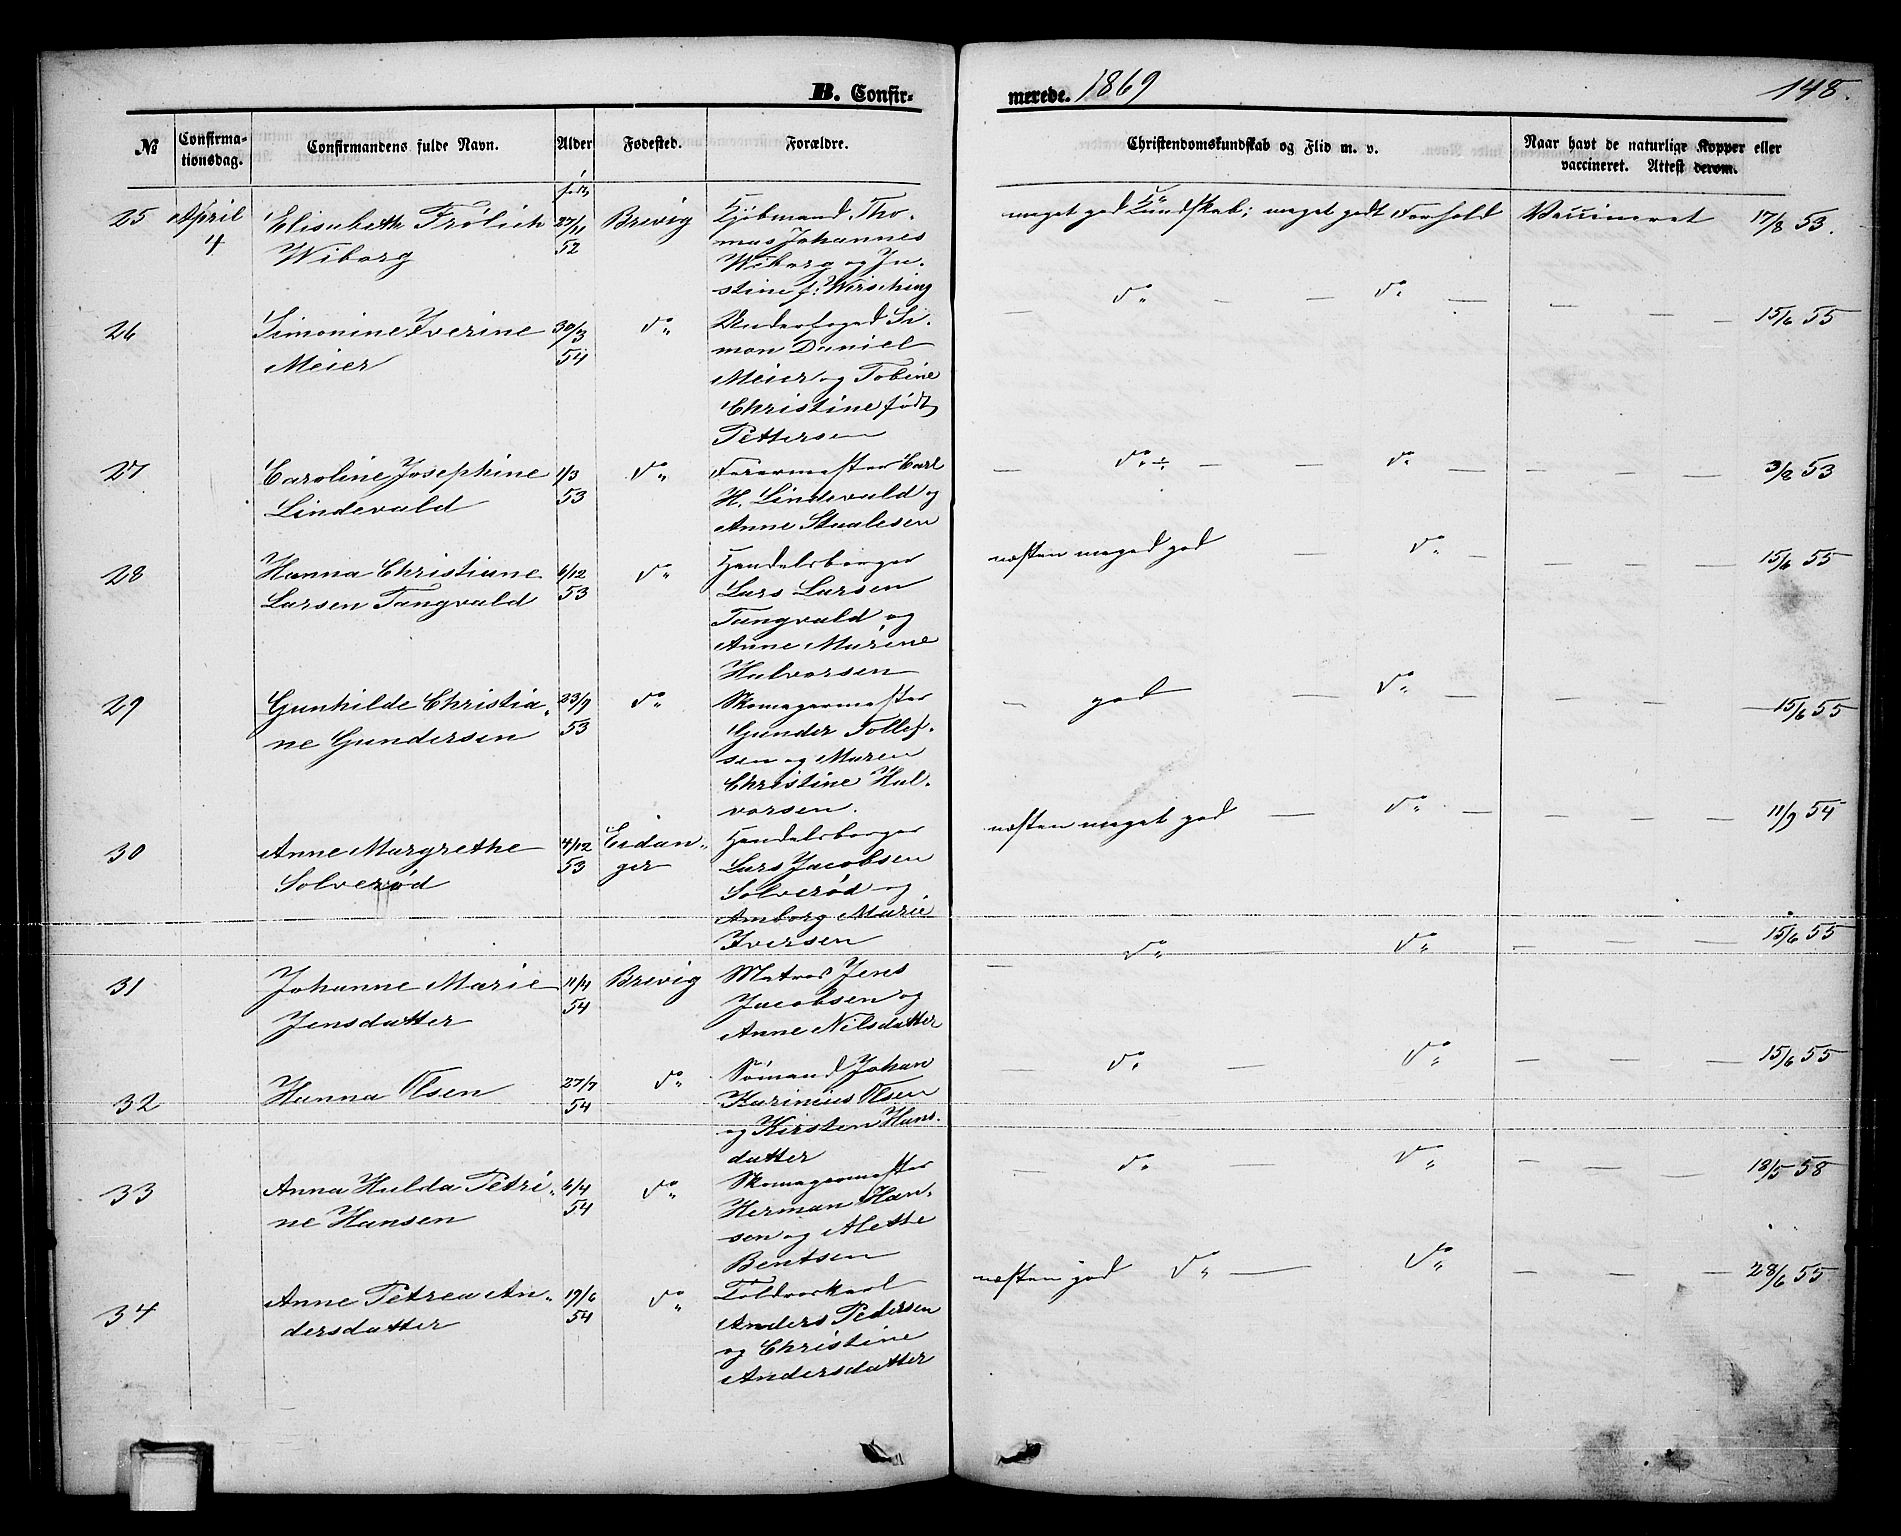 B. Confir-
merede. 1869
148.
№
Confirma-
tionsdag.
Confirmandens fulde Navn.
Alder
Fødested.
Forældre.
Christendomskundskab og Flid m. v.
Naar havt de naturlige Kopper eller
vaccineret. Attest derom.
25
April
4
Elisabeth Frølich
Wiborg
27/11
52
Brevig
Kjøbmand Tho-
mas Johannes
Wiborg og Ju-
stine f: Wirsching
meget god Kundskab; meget godt Forhold
Vaccineret 17/8 53.
26
Simonine Iverine
Meier
30/3
54
do
Underfoged Si-
mon Daniel
Meier og Tobine
Christine født
Pettersen
— do — — do —
— — — 15/6 55
27
Caroline Josephine
Lindevald
1/3
53
do
Farvermester Carl
H. Lindevald og
Anne Staalesen
— do ÷ — — do —
— — — 3/8 53
28
Hanna Christiane
Larsen Tangvald
6/12
53
do
Handelsborger
Lars Larsen
Tangvald og
Anne Marine
Halvorsen
næsten meget god — do —
— — — 15/6 55
29
Gunhilde Christia-
ne Gundersen
23/9
53
do
Skomagermester
Gunder Tollef-
sen og Maren
Christine Hal-
vorsen.
— god — do —
— — — 15/6 55
30
Anne Margrethe
Solverød
4/12
53
Eidan-
ger
Handelsborger
Lars Jacobsen
Solverød og
Amborg Marie
Iversen
næsten meget god — do —
— — — 11/9 54
31
Johanne Marie
Jensdatter
11/4
54
Brevig
Matros Jens
Jacobsen og
Anne Nilsdatter
— do — do
— — — 15/6 55
32
Hanna Olsen
27/7
54
do
Sømand Johan
Karinius Olsen
og Kirsten Hans-
datter
— do — do
— — — 15/6 55
33
Anna Hulda Petri-
ne Hansen
6/4
54
do
Skomagermester
Herman Han-
sen og Alette
Bentsen
— do — do
— — — 18/5 58
34
Anne Petrea An-
dersdatter
19/6
54
do
Toldvokarl
Anders Pedersen
og Christine
Andersdatter
næsten god do — do
— — — 28/6 55